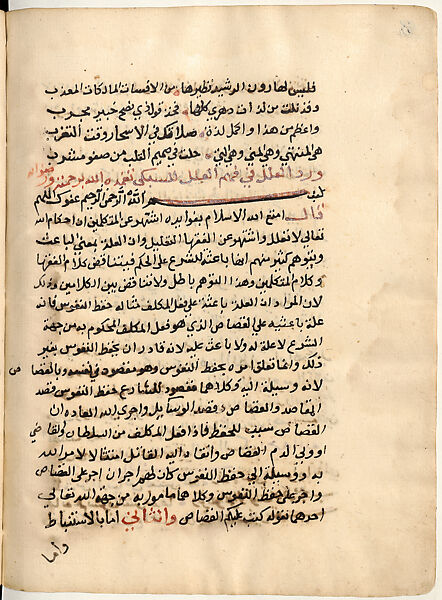 فليس لهارون الرشيد نظيرها من الانسان المالكات المعذب
وقد نلت من لذات دهري كلها فخذ قول ذي نصح خبير مجرب
واعظم من هذا واكمل لذة صلاتك في الاسحار وقت التقرب
هي المنتهى وهي المنى وهي التي حلت في صميم القلب من صفو مشرب
ورد العلل في فهم العلل للسبكي تغمده الله برحمته ورضوانه
بسم الله الرحمن الرحيم عفوك اللهم
قال امتع الله الاسلام بفوائده اشتهر عن المتكلمين ان احكام الله
تعالى لا تعلل واشتهر عن الفقها التعليل وان العلة بمعنى الباعث
ويتوهم كثير منهم انها باعثة للشرع على الحكم فيتناقض كلام الفقها
وكلام المتكلمين وهذا التوهم باطل ولا تناقض بين الكلامين وذلك
لان المراد ان العلة باعثة على فعل المكلف مثاله حفظ النفوس فانه
علة باعثة على القصاص الذي هو فعل المكلف المحكوم به من جهة
الشرع لا علة له ولا باعث عليه لانه قادر ان يحفظ النفوس بغير
ذلك وانما تعلق امره بحفظ النفوس وهو مقصود في نفسه وبالقصاص
لانه وسيلة اليه وكلاهما مقصود للشارع حفظ النفوس قصد
المقاصد والقصاص قصد الوسايل واجرى الله العادة ان
القصاص سبب للحفظ فاذا فعل المكلف من السلطان والقاضي
او ولي الدم القصاص وانقاد اليه القاتل امتثالا لامر الله
به ووسيلة الى حفظ النفوس كان لهم اجران اجر على القصاص
واجر على حفظ النفوس وكلاهما مامور به من جهة الله تعالى
احدهما بقوله كتب عليكم القصاص والثاني اما بالاستنباط
واما